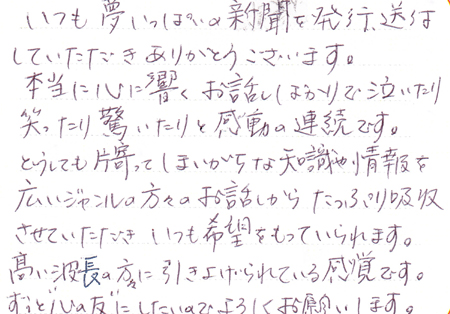 いつも夢いっぱいの新聞を発行、送付
していただきありがとうございます。
本当に心に響くお話しばかりで泣いたり
笑ったり驚いたりと感動の連続です。
どうしても片寄ってしまいがちな知識や情報を
広いジャンルの方々のお話しから たっぷり吸収
させていただき いつも希望をもっていられます。
高い波長の方々に引きよげられている感覚です。
ずっと"心の友"にしたいのでよろしくお願いします。